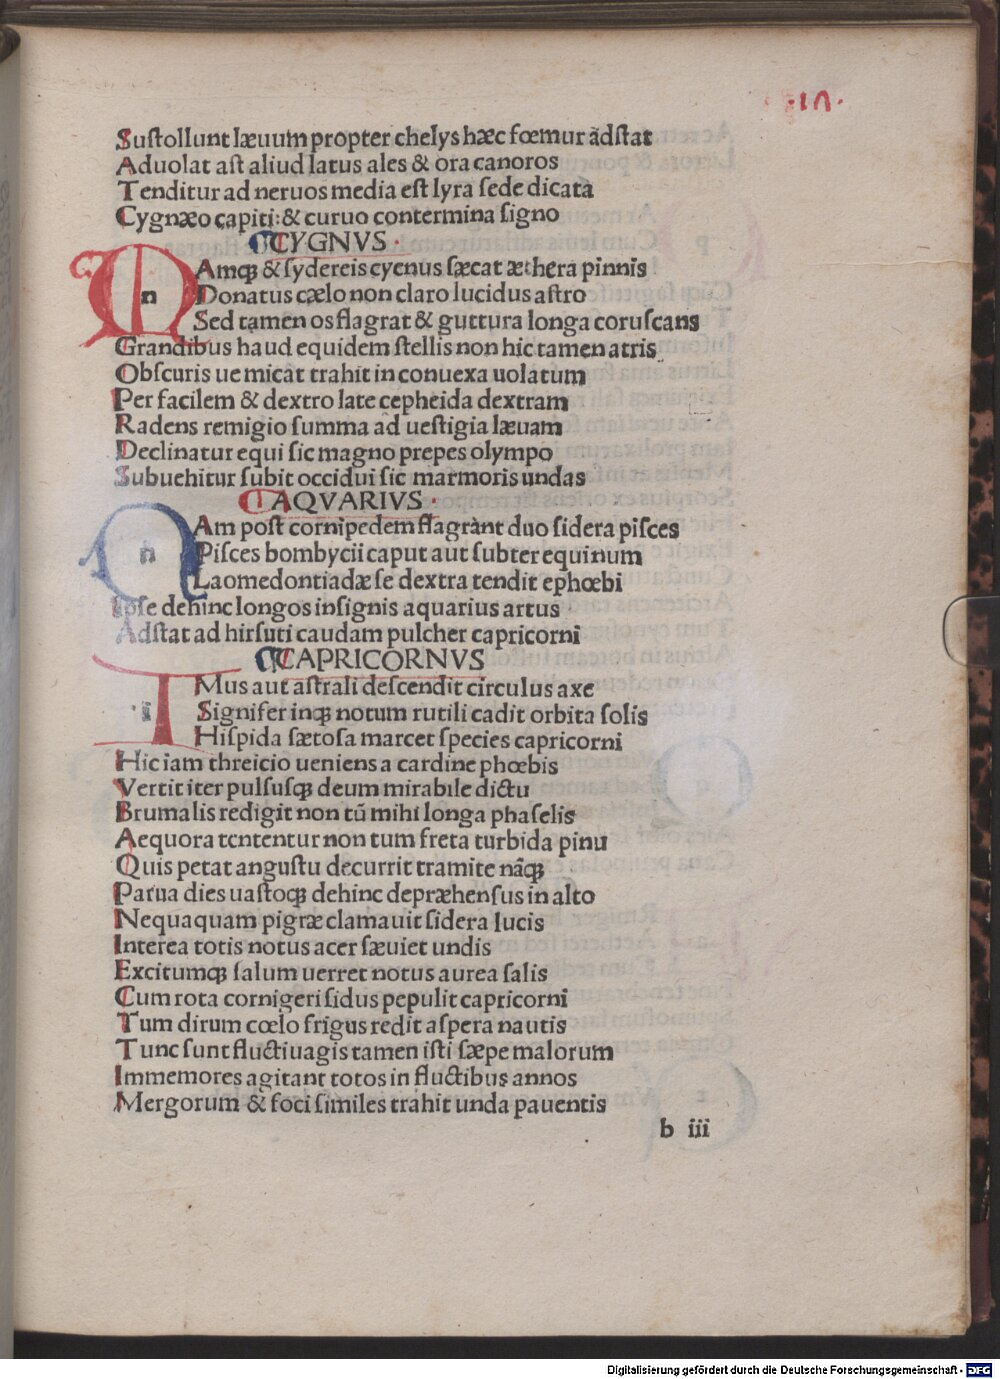 ·ιn·
Suſtollunt læuum propter chelys hæc fœmur ãdſtat
Aduolat aſt aliud latus ales & ora canoros
Tenditur ad neruos media eſt lyra ſede dicata
Cygnæo capiti: & curuo contermina ſigno
CYGNVS ·
nAmqꝫ & ſydereis cycnus ſæcat æthera pinnis
Donatus cælo non claro lucidus aſtro
Sed tamen os flagrat & guttura longa coruſcans
Grandibus haud equidem ſtellis non hic tamen atris
Obſcuris ue micat trahit in conuexa uolatum
Per facilem & dextro late cepheida dextram
Radens remigio ſumma ad ueſtigia læuam
Declinatur equi ſic magno prepes olympo
Subuehitur ſubit occidui ſic marmoris undas
AQVARIVS ·
nAm poſt cornipedem flagrant duo ſidera piſces
Piſces bombycii caput aut ſubter equinum
Laomedontiadæ ſe dextra tendit ephœbi
Ipſe dehinc longos inſignis aquarius artus
Adſtat ad hirſuti caudam pulcher capricorni
CAPRICORNVS
iMus aut aſtrali deſcendit circulus axe
Signifer inqꝫ notum rutili cadit orbita ſolis
Hiſpida ſætoſa marcet species capricorni
Hic iam threicio ueniens a cardine phœbis
Vertit iter pulſuſqꝫ deum mirabile dictu
Brumalis redigit non tũ mihi longa phaſelis
Aequora tententur non tum freta turbida pinu
Quis petat anguſtu decurrit tramite nãqꝫ
Parua dies uaſtoqꝫ dehinc depræhenſus in alto
Nequaquam pigræ clamauit ſidera lucis
Interea totis notus acer ſæuiet undis
Excitumqꝫ ſalum uerret notus aurea ſalis
Cum rota cornigeri ſidus pepulit capricorni
Tum dirum cœlo frigus redit aſpera nautis
Tunc ſunt fluctiuagis tamen iſti ſæpe malorum
Immemores agitant totos in fluctibus annos
Mergorum & foci ſimiles trahit unda pauentis
b iii
Digitalisierung gefördert durch die Deutsche Forschungsgemeinschaft - DFG